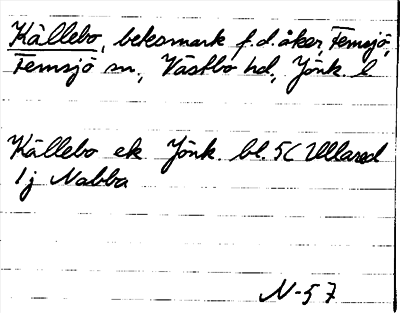 Källebo, betesmark f.d. åker, Femsjö,
Femsjö sn., Västbo hd., Jönk. l
Källebo ek Jönk. bl. 5C Ullared
1j Nabba
N-57